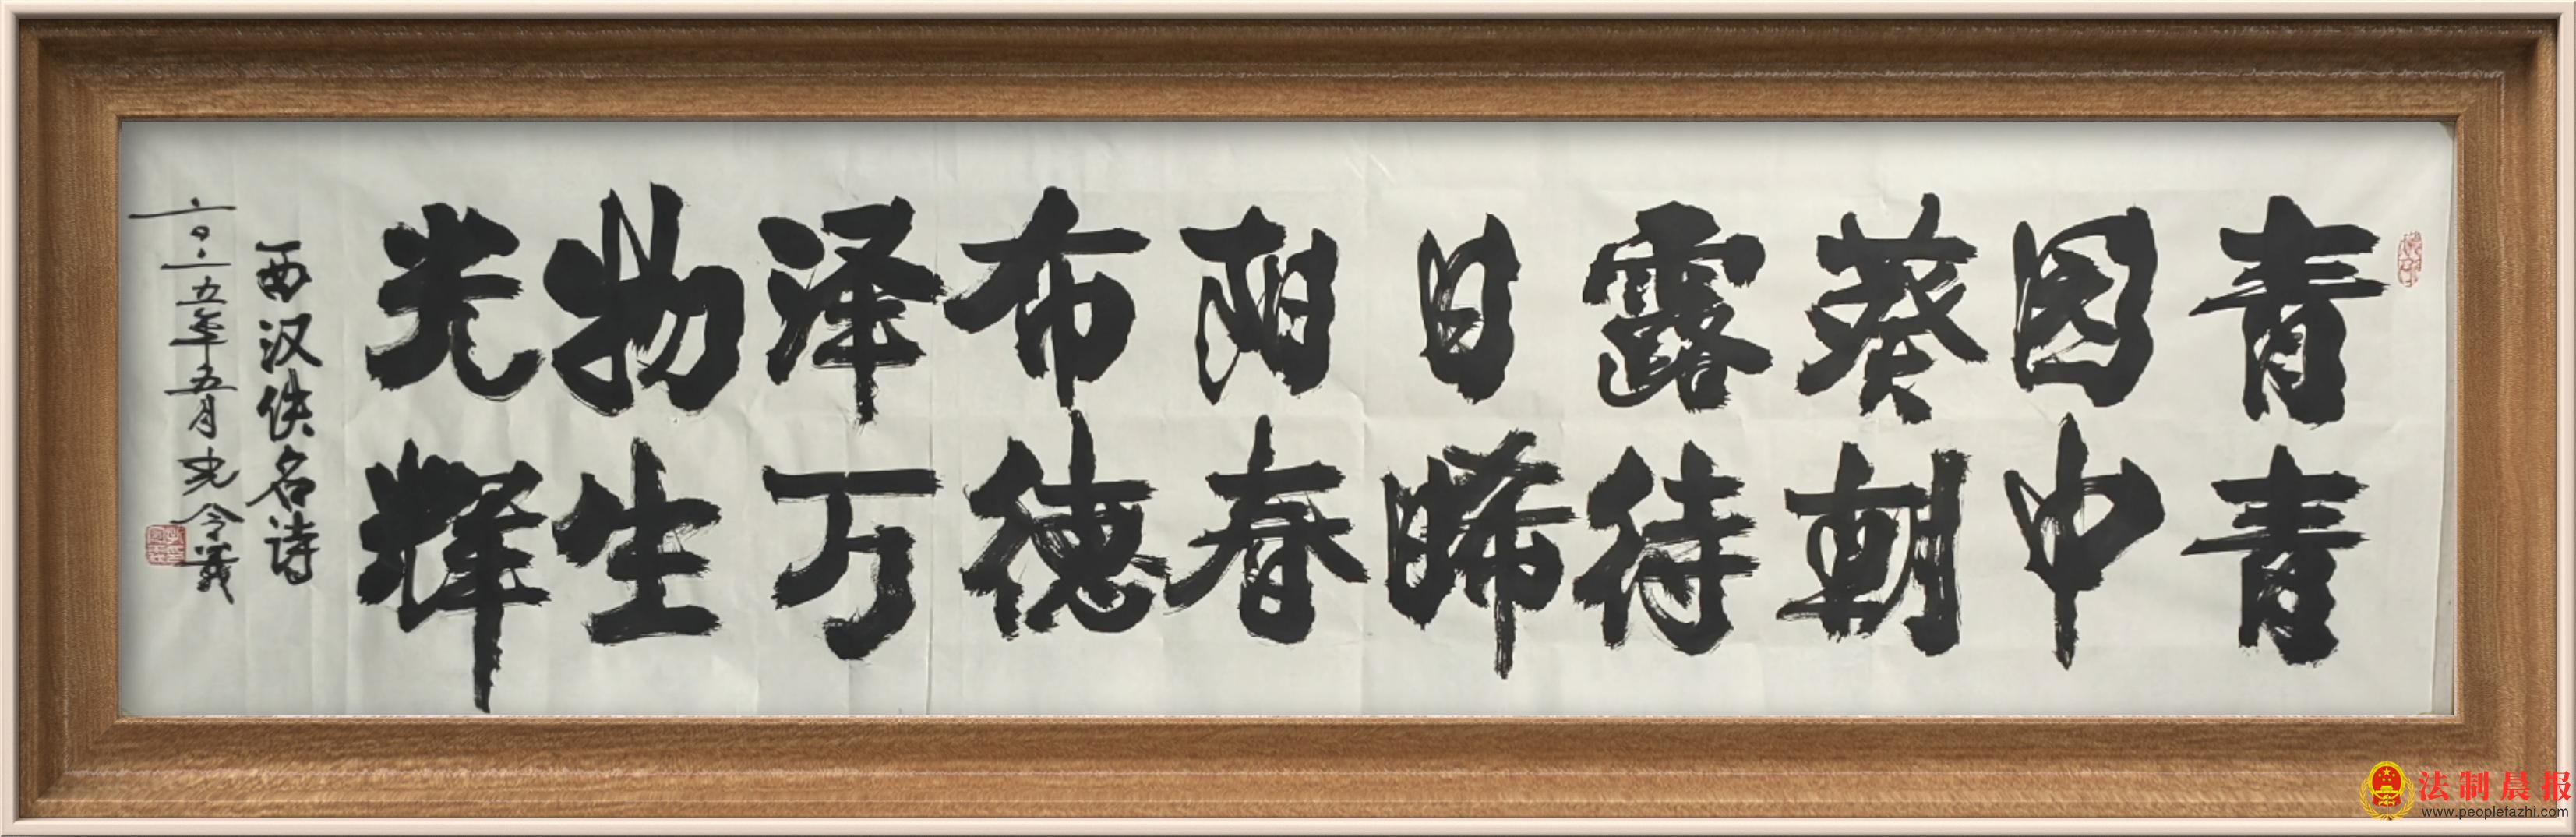 青青
园中
葵朝
露待
日晞
阳春
布德
泽万
物生
光辉
西汉佚名诗
二〇一五年五月
法制晨报
www.peoplefazhi.com